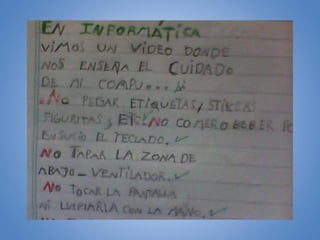 EN INFORMÁTICA
VIMOS UN VIDEO DONDE
NOS ENSEÑA EL CUIDADO
DE MI COMPU...
.NO PEGAR ETIQUETAS, STIKERS
FIGURITAS, ETC. NO COMER O BEBER
ENSUCIO EL TECLADO.
NO TAPAR LA ZONA DE
ABAJO - VENTILADOR.
NO TOCAR LA PANTALLA
NI LIMPIARLA CON LA MANO.